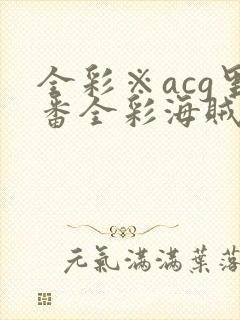 全彩※acg里
番全彩海賊
元氣滿滿葉落